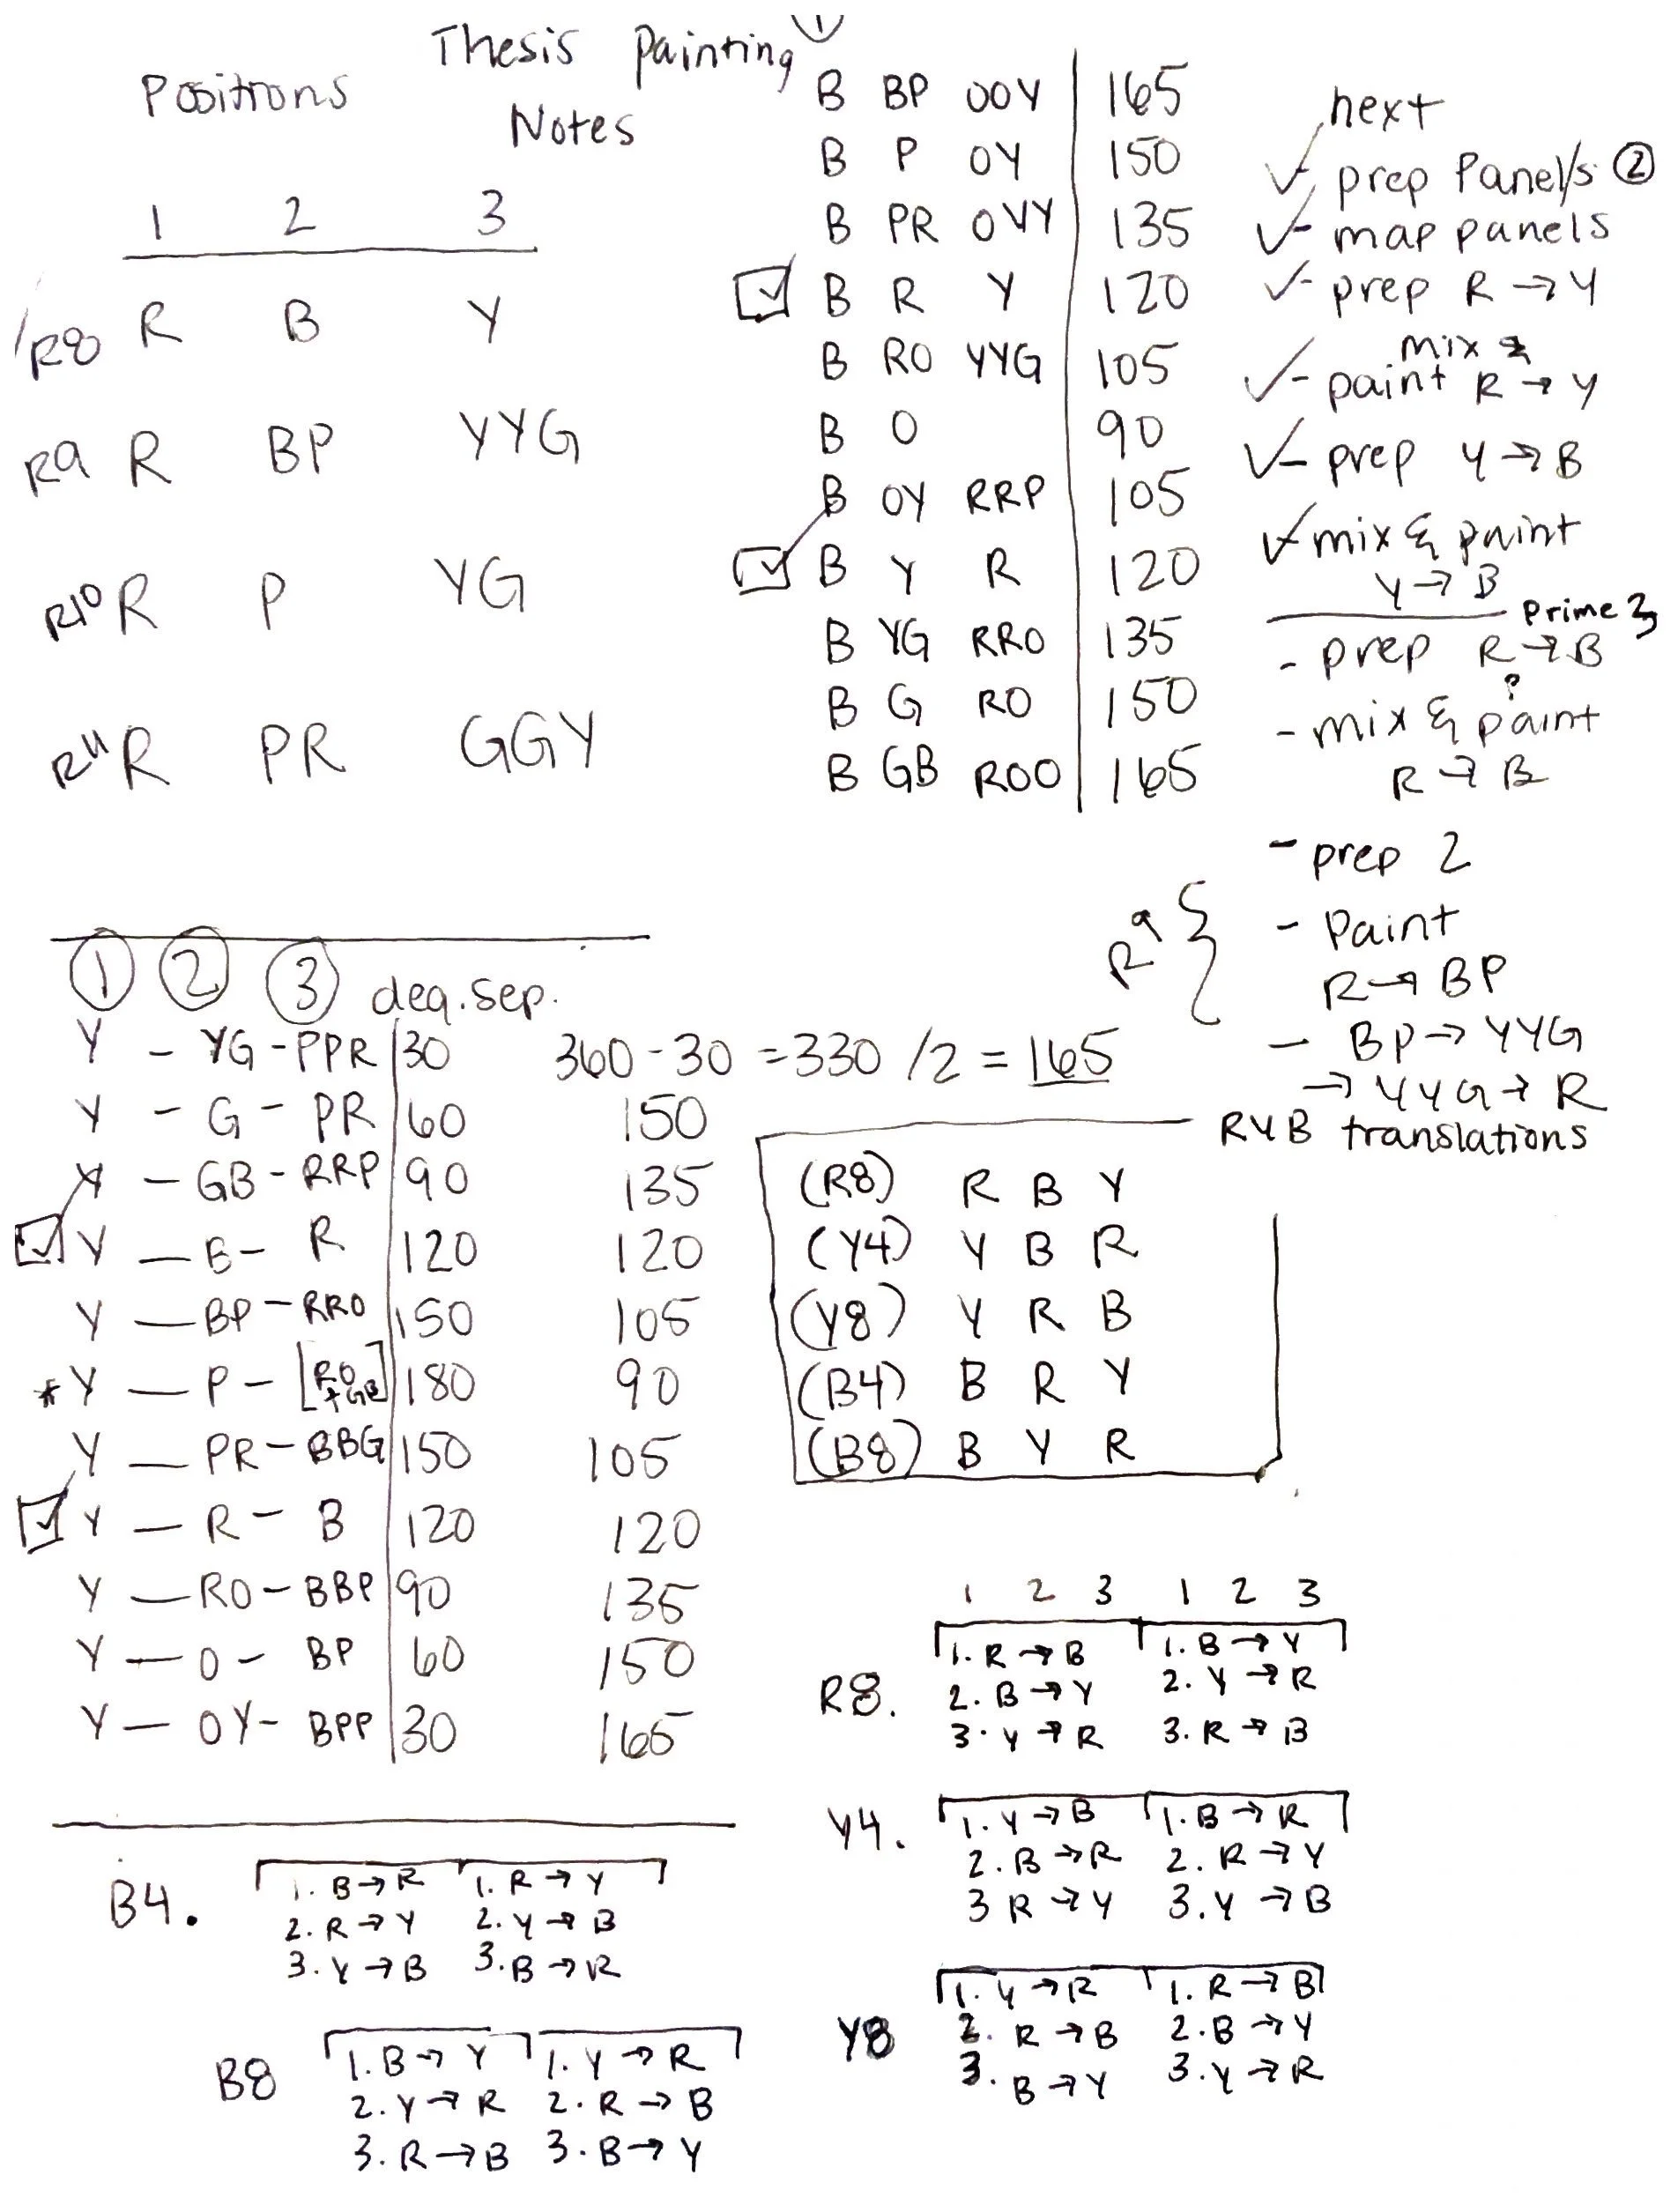 Thesis Painting ①
Notes
Positions
1 2 3
R8 R B Y
R9 R BP YYG
R10 R P YG
R11 R PR GGY
B BP OOY | 165
B P OY | 150
B PR OYY | 135
☑ B R Y | 120
B RO YYG | 105
B O | 90
B OY RRP | 105
☑ B Y R | 120
B YG RRO | 135
B G RO | 150
B GB ROO | 165
next
✓ prep Panels ②
✓- map panels
✓- prep R → Y
mix &
✓- paint R → Y
✓- prep Y → B
✓- mix & paint
Y → B
Prime 3
- prep R → B
?
- mix & paint
R → B
- prep 2
R9 { - Paint
R → BP
- BP → YYG
→ YYG → R
① ② ③ deg. sep.
Y - YG - PPR | 30 360 - 30 = 330 / 2 = 165
Y - G - PR | 60 150
Y - GB - RRP | 90 135
☑ Y - B - R | 120 120
Y - BP - RRO | 150 105
* Y - P - [RO + GB] | 180 90
Y - PR - BBG | 150 105
☑ Y - R - B | 120 120
Y - RO - BBP | 90 135
Y - O - BP | 60 150
Y - OY - BPP | 30 165
RYB translations
(R8) R B Y
(Y4) Y B R
(Y8) Y R B
(B4) B R Y
(B8) B Y R
1 2 3 1 2 3
R8. 1. R → B 1. B → Y
2. B → Y 2. Y → R
3. Y → R 3. R → B
Y4. 1. Y → B 1. B → R
2. B → R 2. R → Y
3 R → Y 3. Y → B
Y8 1. Y → R 1. R → B
2. R → B 2. B → Y
3. B → Y 3. Y → R
B4. 1. B → R 1. R → Y
2. R → Y 2. Y → B
3. Y → B 3. B → R
B8 1. B → Y 1. Y → R
2. Y → R 2. R → B
3. R → B 3. B → Y